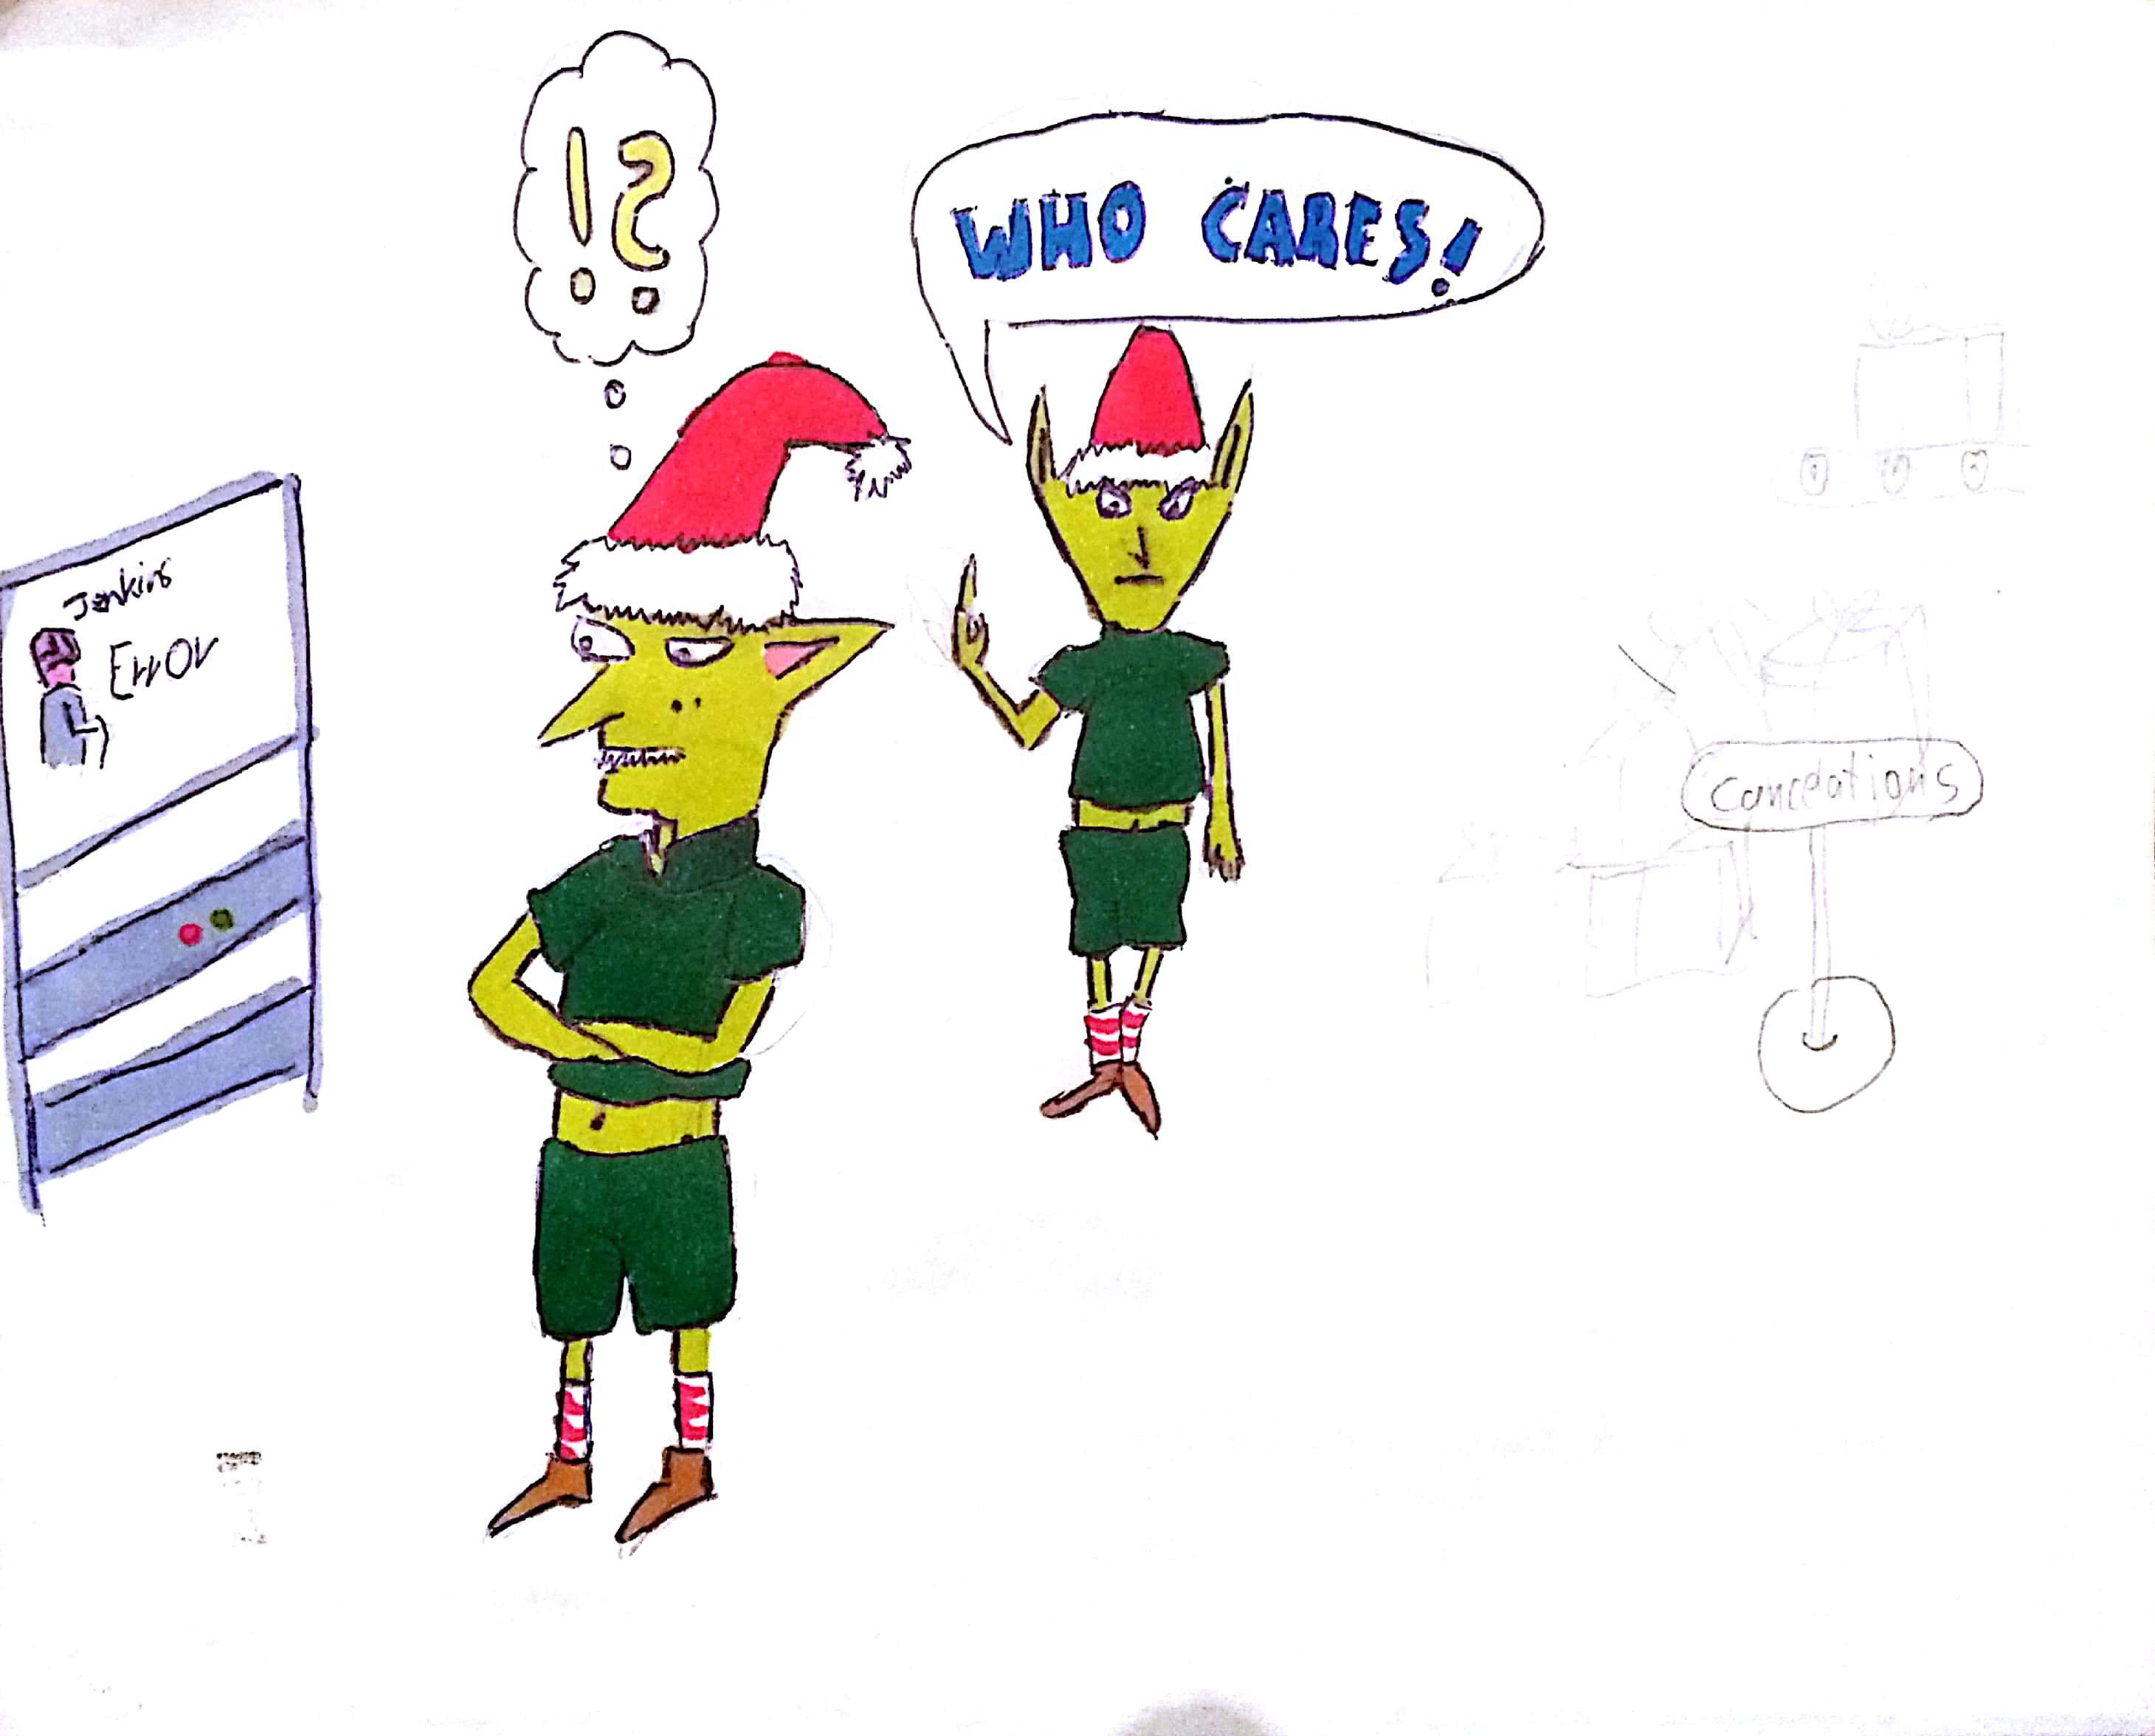 !?
WHO CARES!
Jenkins
Error
cancelations